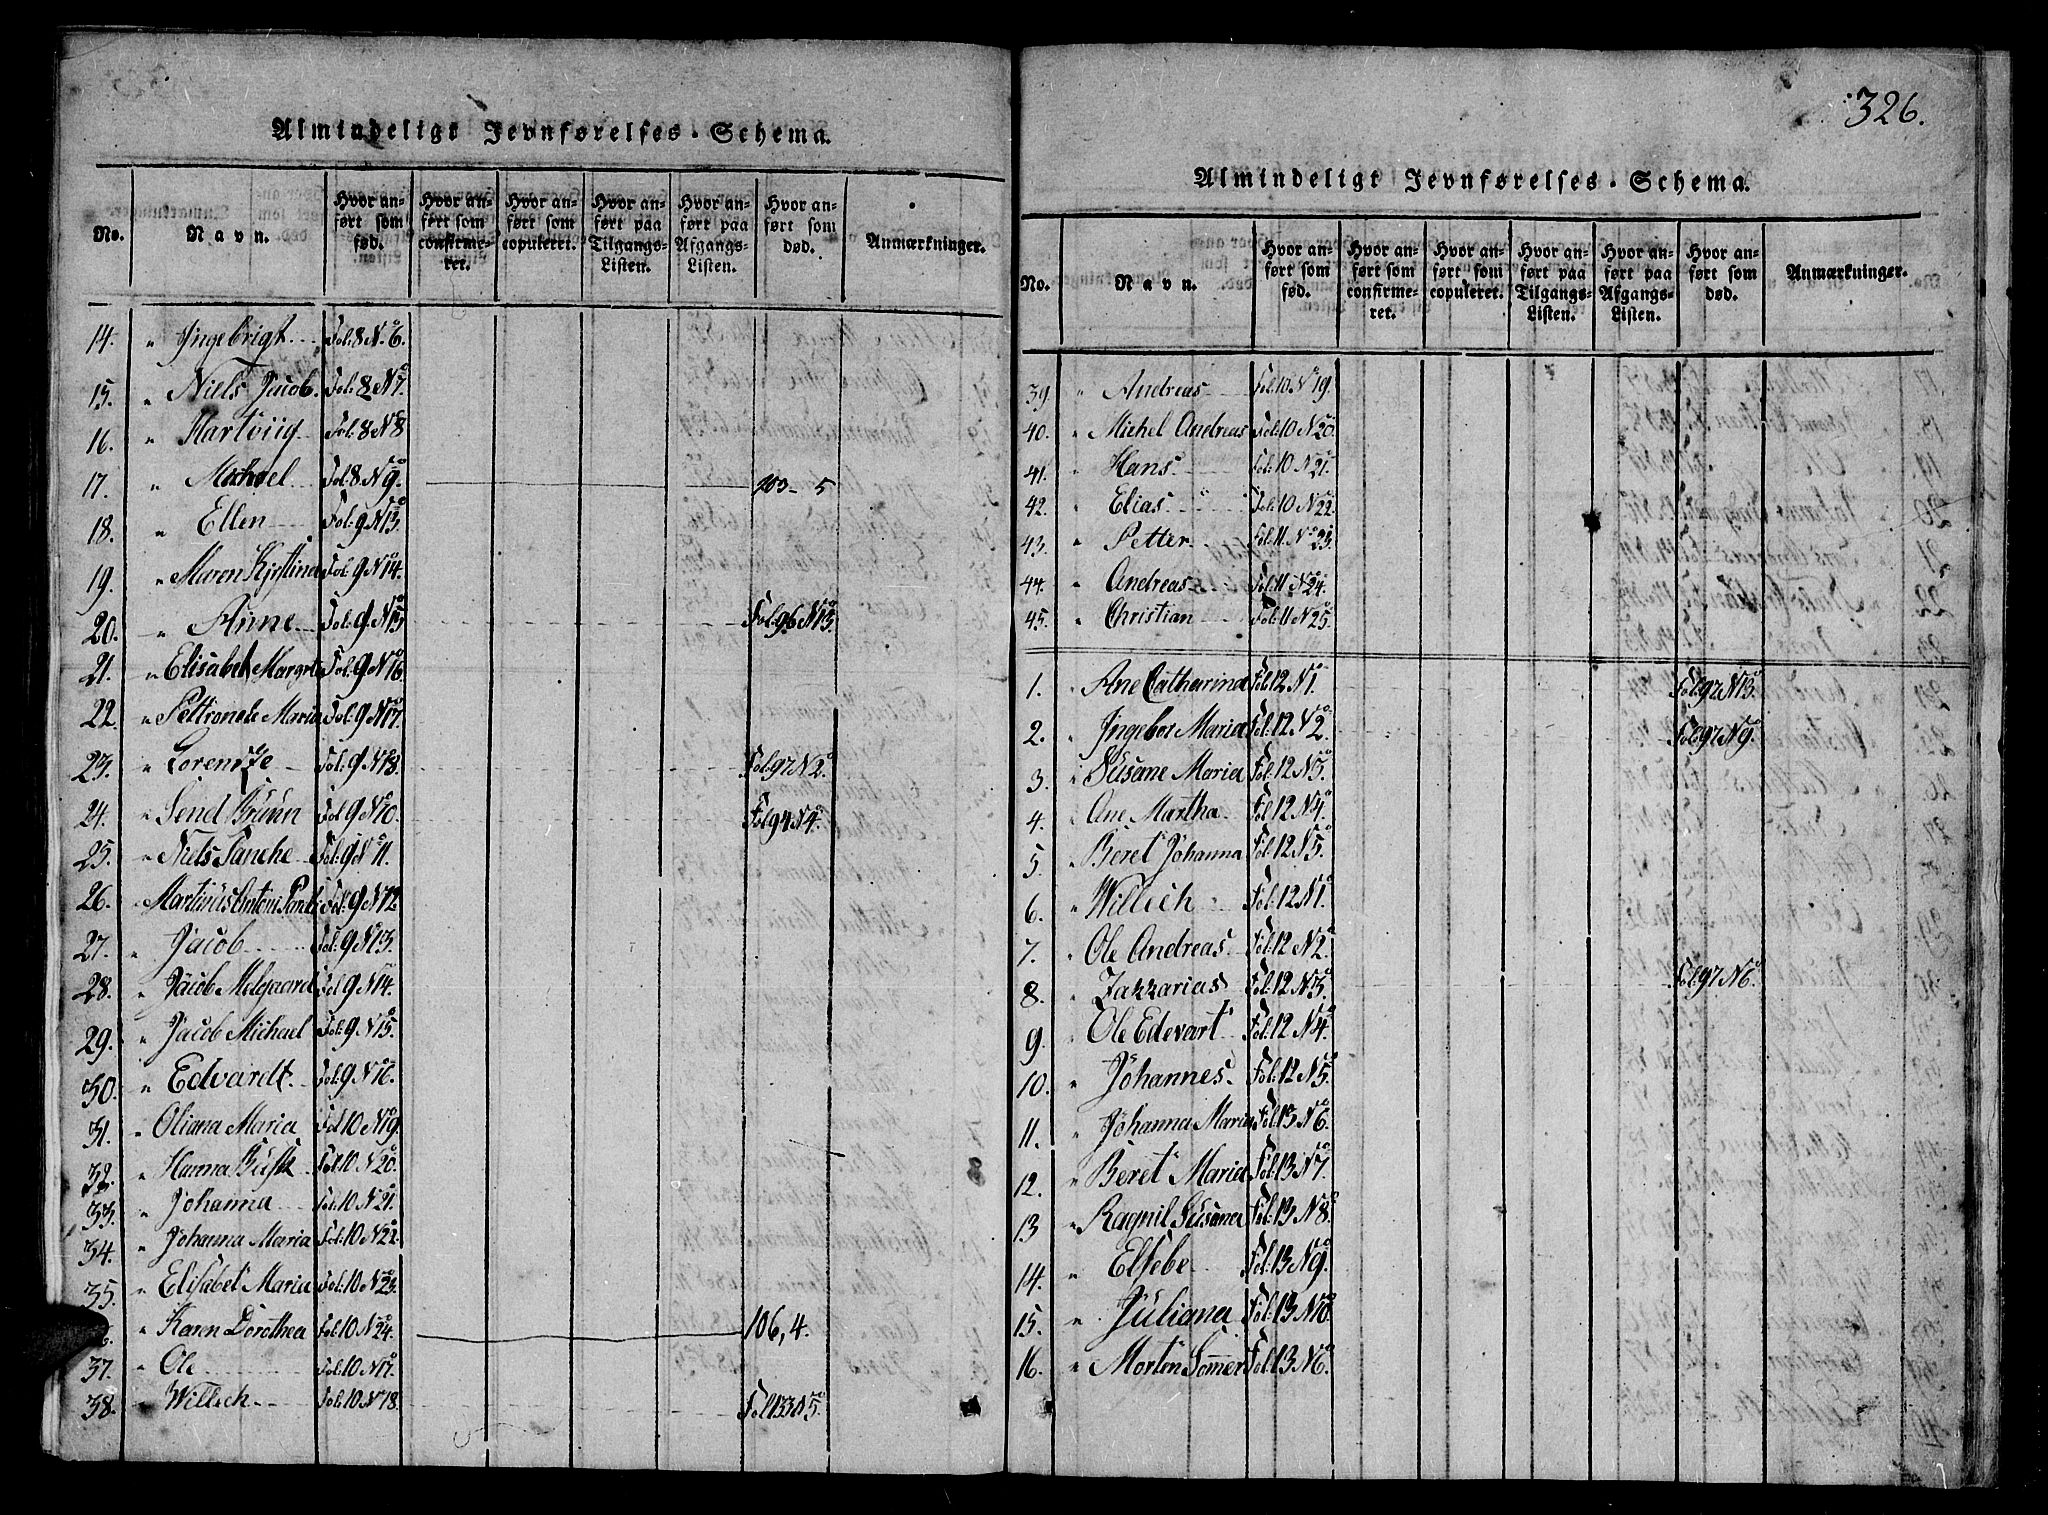 Almindeligt Jevnførelses-Schema.
No. Navn. Hvor anført som fød. Hvor anført som confirmeret. Hvor anført som copuleret. Hvor anført paa Tilgangs-Listen. Hvor anført paa Afgangs-Listen. Hvor anført som død. Anmærkninger.
14. " Ingebrigt Fol: 8 No 6.
15. " Niels Jacob. Fol: 8 No 7.
16. " Hartviig Fol: 8 No 8
17. " Michael Fol: 8 No 9. 103- 5
18. " Ellen Fol: 9 No 13.
19. " Maren Kjrstina Fol: 9 No 14.
20. " Anne Fol: 9 No 15 Fol: 96 No 13.
21. " Elisabet Margrte Fol: 9 No 16
22. " Pettronele Maria Fol: 9 No 17.
23. " Lorentze Fol: 9 No 18. Fol: 97 No 2.
24. " Send Brüun Fol 9 No 10. Fol 94 No 4.
25. " Niels Panche Fol: 9 No 11.
26. " Martinüs Antoni Fol: 9 No 12
27. " Jacob Fol: 9 No 13.
28. " Jacob Melgaard Fol 9 No 14.
29. " Jacob Michael Fol: 9. No 15.
30. " Edvardt Fol: 9 No 16.
31. " Oliana Maria Fol 10 No 19.
32. " Hanna Büsk Fol: 10 No 20.
33. " Johanna Fol: 10 No 21.
34. " Johanna Maria Fol: 10 No 22.
35. " Elisabet Maria Fol: 10 No 23.
" Karen Dorothea Fol: 10 No 24. 106, 4.
37. " Ole Fol: 10 No 17.
38. " Willich Fol: 10 No 18. Fol 133 No 5.
326.
Almindeligt Jevnførelses-Schema.
No. Navn. Hvor anført som fød. Hvor anført som confirmeret. Hvor anført som copuleret. Hvor anført paa Tilgangs-Listen. Hvor anført paa Afgangs-Listen. Hvor anført som død. Anmærkninger.
39 " Andreas Fol: 10 No 19.
40. " Michel Andreas Fol: 10 No 20.
41. " Hans Fol: 10 No 21.
42. " Elias Fol: 10 No 22.
43. " Petter Fol: 11. No 23.
44. " Andreas Fol: 11. No 24.
45. " Christian Fol: 11 No 25.
1. " Ane Catharina Fol: 12 No 1. Fol: 97 No 13.
2. " Ingebor Maria Fol: 12 No 2. Fol: 97 No 9.
3. " Susane Maria Fol: 12 No 3.
4. " Ane Martha Fol 12 No 4.
5 " Beret Johanna Fol: 12 No 5.
6. " Willich Fol: 12 No 1.
7. " Ole Andreas Fol: 12 No 2.
8. " Zakkarias Fol: 12 No 3. Fol: 97 No 6.
9 " Ole Edevart Fol: 12 No 4.
10. " Johannes Fol: 12 No 5.
11. " Johanna Maria Fol: 13 No 6.
12. " Beret Maria Fol: 13 No 7.
13 " Ragnil Susana Fol: 13 No 8.
14. " Elsebe Fol: 13 No 9.
15. " Juliana Fol: 13 No 10.
16. " Morten Sommer Fol: 13 No 6.